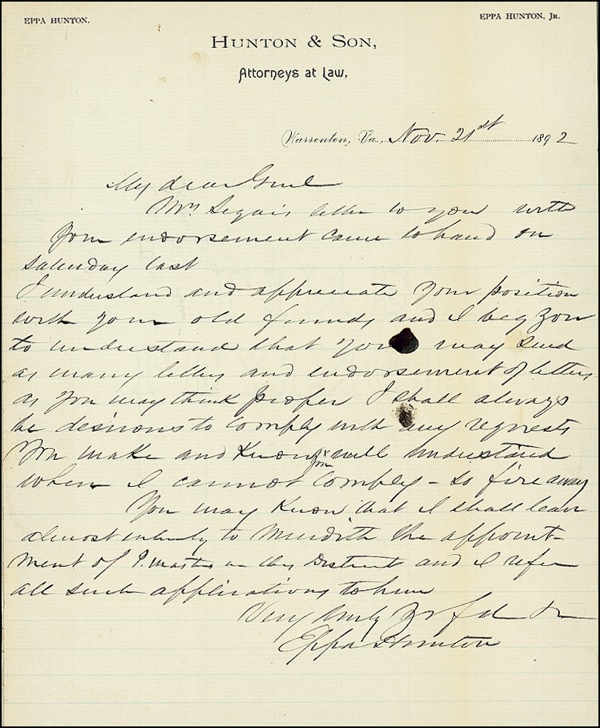 EPPA HUNTON.
EPPA HUNTON, Jr.
HUNTON & SON,
Attorneys at Law,
Warrenton, Va., Nov. 21st 1892
My dear Genl
Mrs letter to you with
your endorsement came to hand on
saturday last
I understand and appreciate your position
with your old friends, and I beg you
to understand that you may send
as many letters and endorsement of letters
as you may think proper I shall always
be desirous to comply with any requests
you make and know you will understand
when I cannot comply - so fire away
You may know that I shall leave
almost entirely to Meredith the appoint-
ment of P. masters in this District and I refer
all such applications to him
Very truly Yr
Eppa Hunton